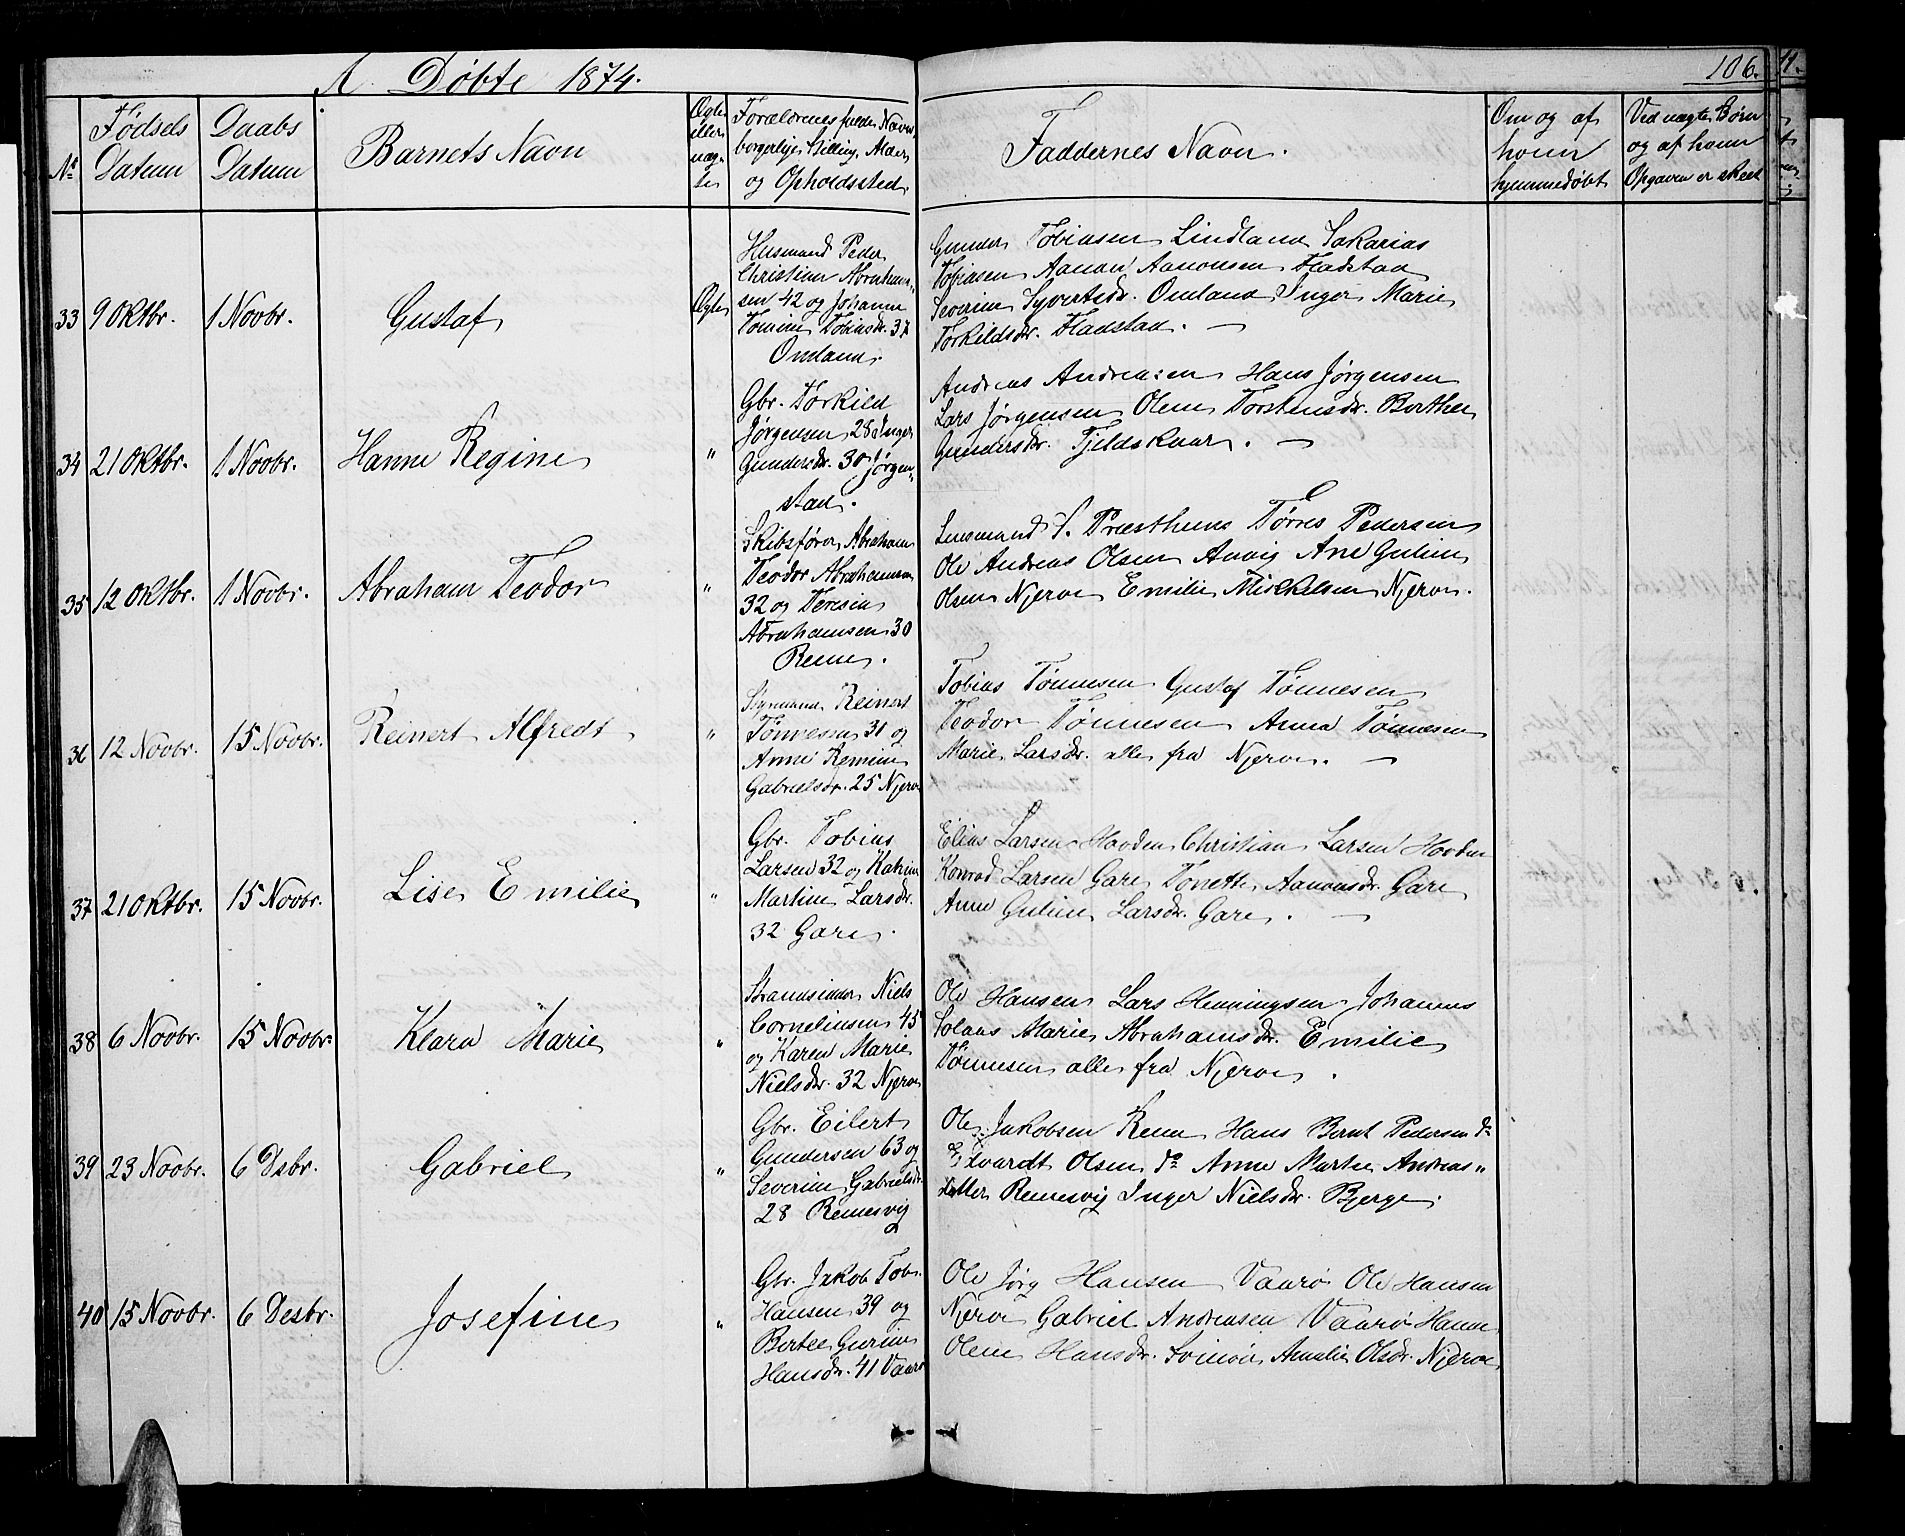 A. Døbte 1874.
106.
No
Fødsels Datum
Daabs Datum
Barnets Navn
Ægte eller uægte
Forældrenes fulde Navn borgerlige Stilling, Alder og Opholdssted
Faddernes Navn.
Om og af hvem hjemmedøbt
Ved uægte Børn og af hvem Opgaven er skeet
33 9 Oktbr. 1 Novbr. Gustaf Ægte
Husmand Peder
Christian Abraham-
sen 42 og Johanne
Tomine Tobiasdr. 37
Omland.
Gunder Tobiasen Lindland Sakarias
Tobiasen Aanon Aanonsen Fladstad
Severine Syvertsdr. Omland Inger Marie
Torkildsdr. Fladstad. —
34 21 Oktbr. 1 Novbr. Hanne Regine "
Gbr. Torkild
Jørgensen 28 Inger
Gundersdr. 30 Jørgen-
stad.
Andreas Andreasen Hans Jørgensen
Lars Jørgensen Olene Torstensdr. Berthe
Gundersdr. Fjeldskaar. —
35 12 Oktbr. 1 Novbr. Abraham Teodor "
Skibsfører Abraham
Teodor Abrahamsen
32 og Teresia
Abrahamsen 30
Reme.
Lensmand S. Præsthuus Tørres Pedersen
Ole Andreas Olsen Ane Guline
Olsen Njerve Emilie Mickelsen Njerve.
36 12 Novbr. 15 Novbr. Reinert Alfredt "
Sømand Reinert
Tønnessen 31 og
Anne Remine
Gabrielsdr. 25 Njerve
Tobias Tønnesen Gustaf Tønnesen
Teodor Tønnesen Anna Tønnesen
Marie Larsdr. alle fra Njerve. —
37 21 Oktbr. 15 Novbr. Lise Emilie "
Gbr. Tobias
Larsen 32 og Katrine
Martine Larsdr.
32 Gare.
Elias Larsen Hovden Christian Larsen Hovden
Konrad Larsen Gare Tonette Aanonsdr. Gare
Anne Guline Larsdr. Gare. —
38 6 Novbr. 15 Novbr. Klara Marie "
Strandsidder Niels
Corneliusen 45
og Karen Marie
Nielsdr. 32 Njerve
Ole Hansen Lars Henningsen Johannes
Marie Abrahamsdr. Emilie
Tønnesen alle fra Njerve.
39 23 Novbr. 6 Dsbr. Gabriel "
Gbr. Eilert
Gundersen 63 og
Severine Gabrielsdr.
28 Remesvig
Ole Jakobsen Reme Hans Bernt Pedersen do
Edvardt Olsen do Anne Marthe Andreas-
datter Remesvig Inger Nielsdr. Bjerge.
40 15 Novbr. 6 Desbr. Josefine "
Gbr. Jakob Tob.
Hansen 39 og
Bertee Gurine
Hansdr. 41 Vaarø
Ole Jørg Hansen Vaarø Ole Hansen
Njerve Gabriel Andreasen Vaarø Hanne
Olene Hansdr. Svinør Amalie Olsdr. Njerve